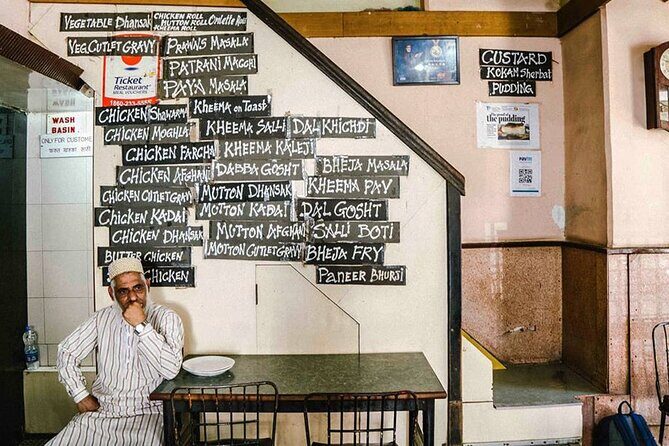 VEGETABLE DHANSAK
CHICKEN ROLL
MUTTON ROLL
KHEEMA ROLL
VEG.CUTLET GRAVY
PRAWNS MASALA
PATRANI MACCHI
PAYA MASALA
Ticket
Restaurant
MEAL VOUCHERS
1860-233-6255
CHICKEN
CHICKEN MOGHLAI
CHICKEN FARCHA
CHICKEN AFGHANI
CHICKEN CUTLET GRAVY
CHICKEN KADAI
CHICKEN DHANSAK
BUTTER CHICKEN
CHICKEN
KHEEMA ON TOAST
KHEEMA SALLI
KHEEMA KALEJI
DABBA GOSHT
MUTTON DHANSAK
MUTTON KADAI
MUTTON AFGHANI
MUTTON CUTLET GRAVY
DAL KHICHDI
BHEJA MASALA
KHEEMA PAV
DAL GOSHT
SALLI BOTI
BHEJA FRY
PANEER BHURJI
WASH
BASIN
ONLY FOR CUSTOMER
CUSTARD
KOKAM SHERBAT
PUDDING
the pudding